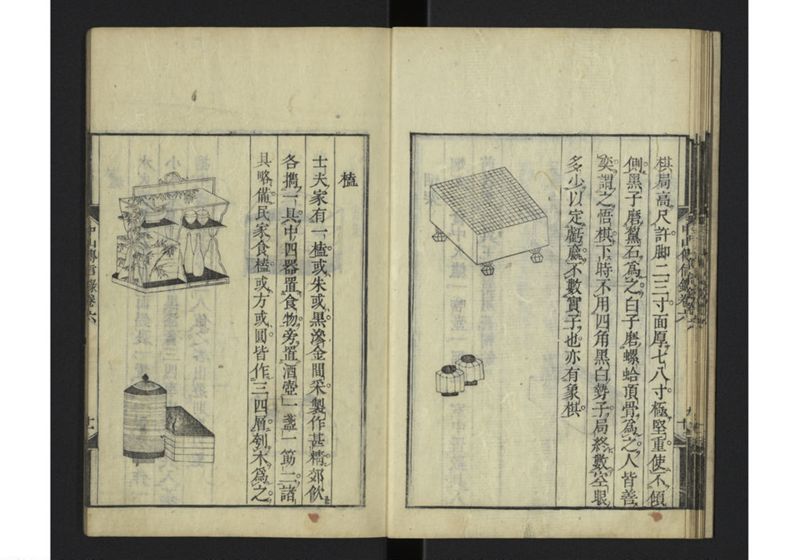 棋局高尺許脚二三寸面厚七八寸極堅重使不傾
側黑子磨黧石為之白子磨螺蛤頂骨為之人皆善
奕謂之悟棋下時不用四角黑白勢子局終數空眼
多少以定虧贏不數實子也亦有象棋
中山傳信錄卷六
榼
士大家有一榼或朱或黑滲金間采製作甚精郊飲
各擕一具中四器置食物旁置酒壺一盞一筯二諸
具略備民家食榼或方或圓皆作三四層刳木為之
中山傳信錄卷六
十一